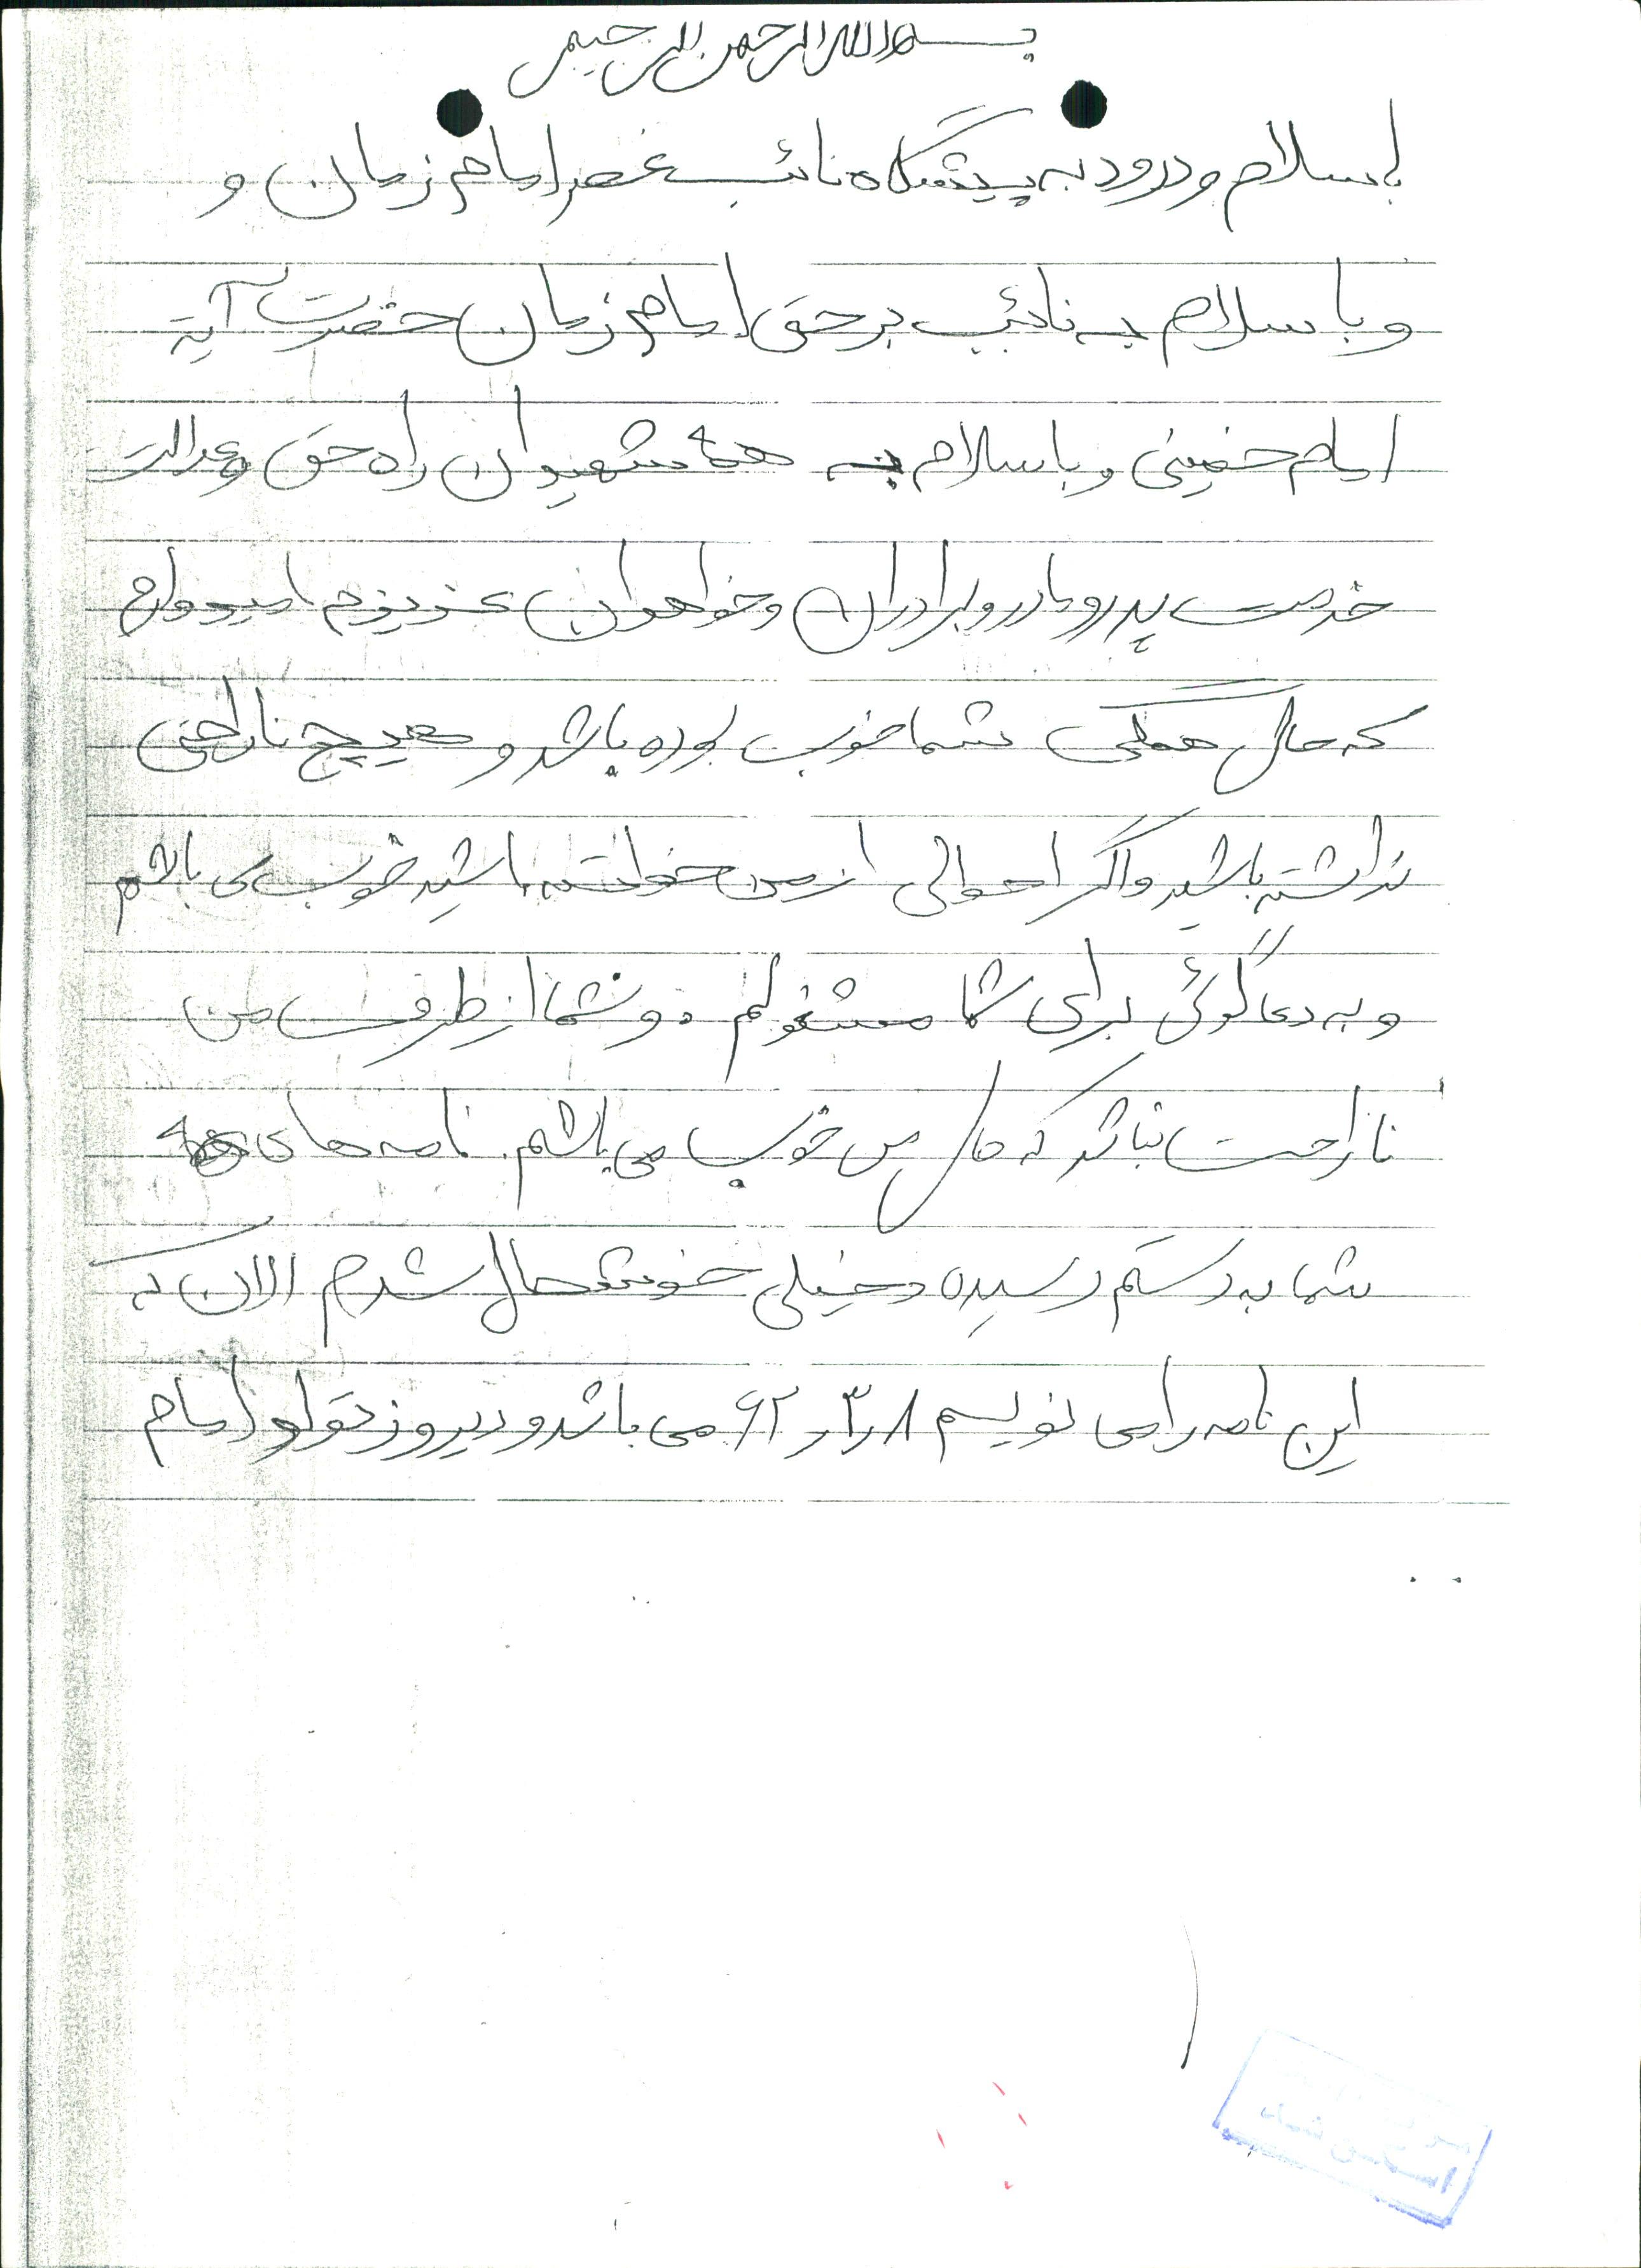 بسم الله الرحمن الرحیم
باسلام و درود به پیشگاه نائب عصر امام زمان و
و با سلام به نائب برحق امام زمان حضرت آیة
امام خمینی و با سلام به همه شهیدان راه حق و عدالت
خدمت پدر و مادر و برادران و خواهران عزیزم امیدوارم
که حال همگی شما خوب بوده باشد و هیچ ناراحتی
نداشته باشید و اگر احوالی از من خواسته باشید خوب می باشم
و به دعا گوئی برای شما مشغولم. و شما از طرف من
ناراحت نباشد که حال من خوب می باشم. نامه های
شما به دستم رسیده و خیلی خوشحال شدم الان که
این نامه را می نویسم ۸ر۳ر۶۲ می باشد و دیروز تولد امام